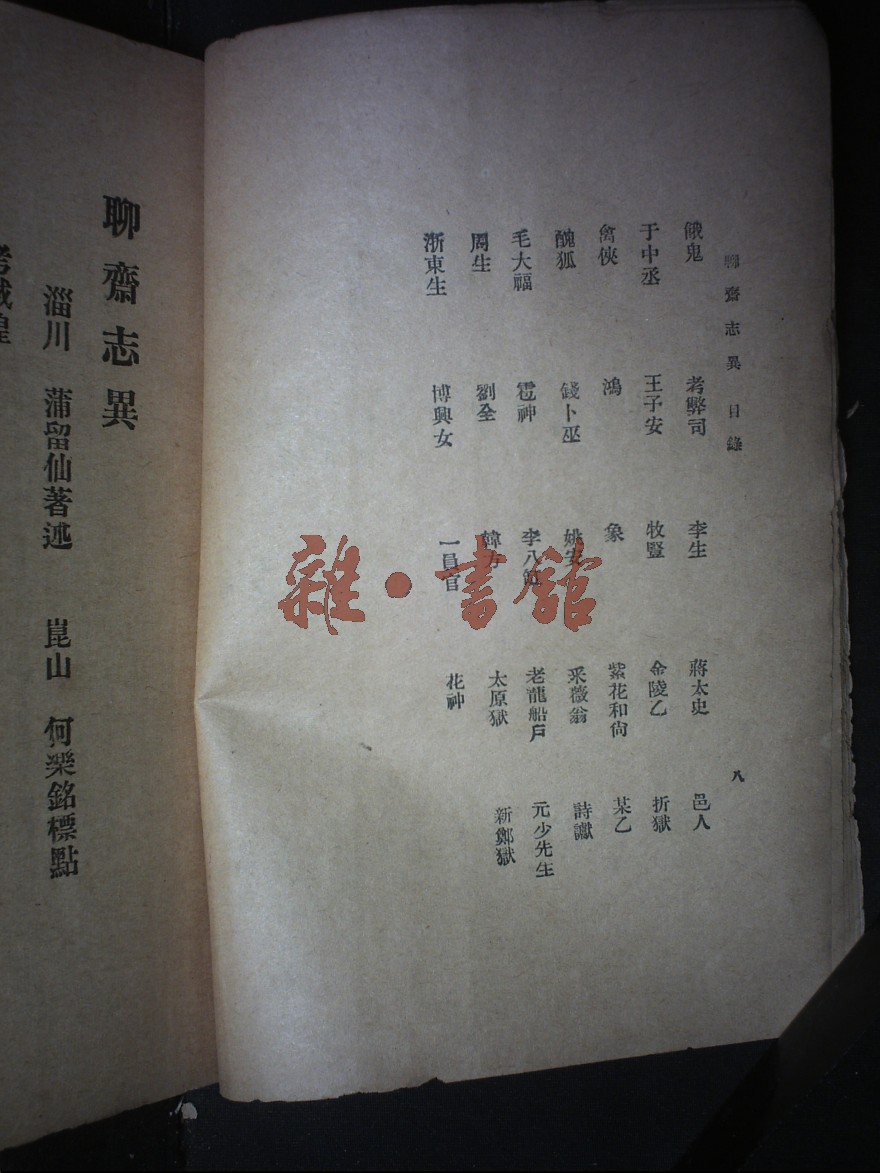 聊齋志異 目錄 八
餓鬼 考弊司 李生 蔣太史 邑人
于中丞 王子安 牧豎 金陵乙 折獄
禽俠 鴻 象 紫花和尙 某乙
醜狐 錢卜巫 姚安 采薇翁 詩讞
毛大福 雹神 李八缸 老龍船戶 元少先生
周生 劉全 韓方 太原獄 新鄭獄
浙東生 博興女 一員官 花神
聊齋志異
淄川 蒲留仙著述 崑山 何槼銘標點
考城隍
雜·書館